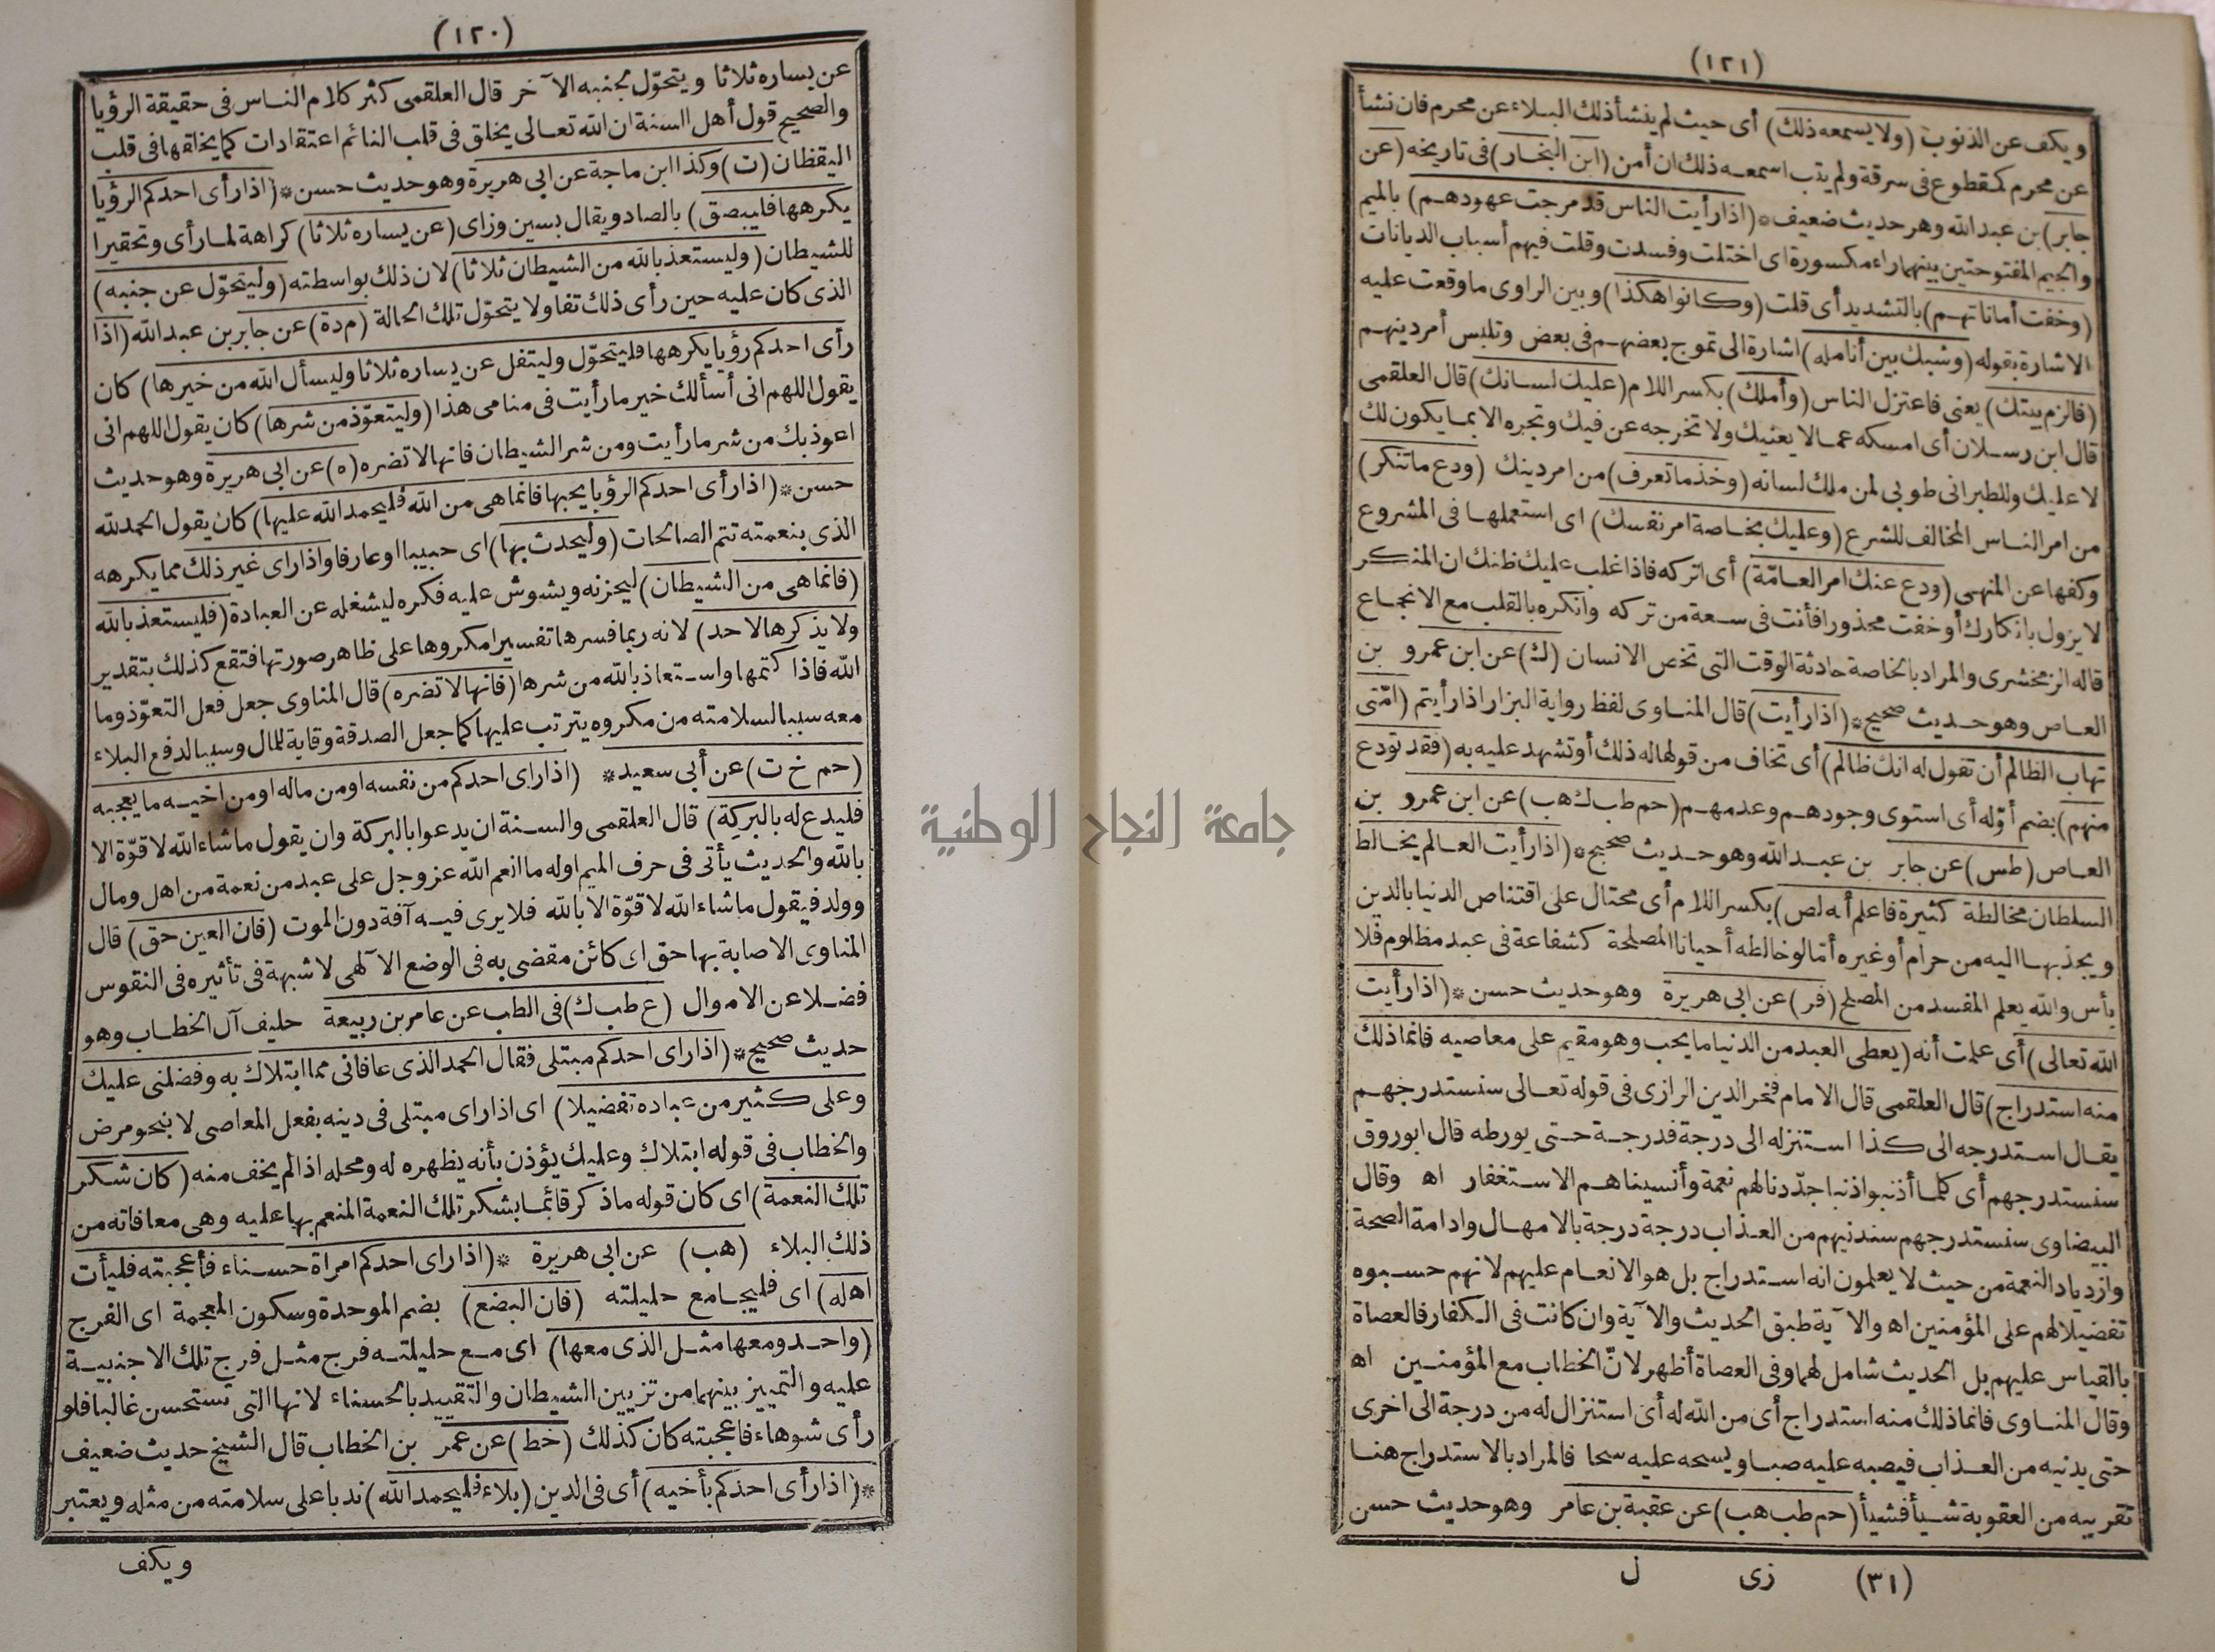 (١٢٠)
عن يساره ثلاثا ويتحوّل لجنبه الآخر قال العلقمى كثر كلام الناس فى حقيقة الرؤيا
والصحيح قول أهل السنة ان الله تعالى يخلق فى قلب النائم اعتقادات كما يخلقها فى قلب
اليقظان (ت) وكذا ابن ماجة عن ابى هريرة وهو حديث حسن * (اذا رأى احدكم الرؤيا
يكرهها فليبصق) بالصاد ويقال بسين وزاى (عن يساره ثلاثا) كراهة لما رأى وتحقيرا
للشيطان (وليستعذ بالله من الشيطان ثلاثا) لان ذلك بواسطته (وليتحوّل عن جنبه)
الذى كان عليه حين رأى ذلك تفاولا يتحوّل تلك الحالة (م د ة) عن جابر بن عبد الله (اذا
رأى احدكم رؤيا يكرهها فليتحوّل وليتفل عن يساره ثلاثا وليسأل الله من خيرها) كان
يقول اللهم انى أسألك خير ما رأيت فى منامى هذا (وليتعوّذ من شرها) كان يقول اللهم انى
اعوذ بك من شر ما رأيت ومن شر الشيطان فانها لا تضره (ه) عن ابى هريرة وهو حديث
حسن * (اذا رأى احدكم الرؤيا يحبها فانما هى من الله فليحمد الله عليها) كان يقول الحمد لله
الذى بنعمته تتم الصالحات (وليحدث بها) اى حبيبا او عارفا واذا راى غير ذلك مما يكرهه
(فانما هى من الشيطان) ليحزنه ويشوش عليه فكره ليشغله عن العبادة (فليستعذ بالله
ولا يذكرها لاحد) لانه ربما فسرها تفسيرا مكروها على ظاهر صورتها فتقع كذلك بتقدير
الله فاذا كتمها واستعاذ بالله من شرها (فانها لا تضره) قال المناوى جعل فعل التعوّذ وما
معه سببا لسلامته من مكروه يترتب عليها كما جعل الصدقة وقاية للمال وسببا لدفع البلاء
(حم خ ت) عن أبى سعيد * (اذا راى احدكم من نفسه او من ماله او من اخيه ما يعجبه
فليدع له بالبركة) قال العلقمى والسنة ان يدعوا بالبركة وان يقول ما شاء الله لا قوّة الا
بالله والحديث يأتى فى حرف الميم اوله ما انعم الله عز وجل على عبد من نعمة من اهل ومال
وولد فيقول ما شاء الله لا قوّة الا بالله فلا يرى فيه آفة دون الموت (فان العين حق) قال
المناوى الاصابة بها حق اى كائن مقضى به فى الوضع الالهى لا شبهة فى تأثيره فى النفوس
فضلا عن الاموال (ع طب ك) فى الطب عن عامر بن ربيعة حليف آل الخطاب وهو
حديث صحيح * (اذا راى احدكم مبتلى فقال الحمد الذى عافانى مما ابتلاك به وفضلنى عليك
وعلى كثير من عباده تفضيلا) اى اذا راى مبتلى فى دينه بفعل المعاصى لا بنحو مرض
والخطاب فى قوله ابتلاك وعليك يؤذن بأنه يظهره له ومحله اذا لم يخف منه (كان شكر
تلك النعمة) اى كان قوله ما ذكر قائما بشكر تلك النعمة المنعم بها عليه وهى معافاته من
ذلك البلاء (هب) عن ابى هريرة * (اذا راى احدكم امراة حسناء فأعجبته فليأت
اهله) اى فليجامع حليلته (فان البضع) بضم الموحدة وسكون المعجمة اى الفرج
(واحد ومعها مثل الذى معها) اى مع حليلته فرج مثل فرج تلك الاجنبية
عليه والتمييز بينهما من تزيين الشيطان والتقييد بالحسناء لانها التى تستحسن غالبا فلو
رأى شوهاء فاعجبته كان كذلك (خط) عن عمر بن الخطاب قال الشيخ حديث ضعيف
* (اذا رأى احدكم بأخيه) أى فى الدين (بلاء فليحمد الله) ندبا على سلامته من مثله ويعتبر
ويكف
(١٢١)
ويكف عن الذنوب (ولا يسمعه ذلك) أى حيث لم ينشأ ذلك البلاء عن محرم فان نشأ
عن محرم كمقطوع فى سرقة ولم يتب اسمعه ذلك ان أمن (ابن النجار) فى تاريخه (عن
جابر) بن عبد الله وهر حديث ضعيف * (اذا رأيت الناس قد مرجت عهودهم) بالميم
والجيم المفتوحتين بينهما راء مكسورة اى اختلت وفسدت وقلت فيهم أسباب الديانات
(وخفت أماناتهم) بالتشديد أى قلت (وكانوا هكذا) وبين الراوى ما وقعت عليه
الاشارة بقوله (وشبك بين أنامله) اشارة الى تموج بعضهم فى بعض وتلبس أمر دينهم
(فالزم بيتك) يعنى فاعتزل الناس (وأملك) بكسر اللام (عليك لسانك) قال العلقمى
قال ابن رسلان أى امسكه عما لا يعنيك ولا تخرجه عن فيك وتجره الا بما يكون لك
لا عليك وللطبرانى طوبى لمن ملك لسانه (وخذ ما تعرف) من امر دينك (ودع ما تنكر)
من امر الناس المخالف للشرع (وعليك بخاصة امر نفسك) اى استعملها فى المشروع
وكفها عن المنهى (ودع عنك امر العامّة) أى اتركه فاذا غلب عليك ظنك ان المنكر
لا يزول بانكارك أو خفت محذورا فأنت فى سعة من تركه وانكره بالقلب مع الانجماع
قاله الزمخشرى والمراد بالخاصة حادثة الوقت التى تخص الانسان (ك) عن ابن عمرو بن
العاص وهو حديث صحيح * (اذا رأيت) قال المناوى لفظ رواية البزار اذا رأيتم (امّتى
تهاب الظالم أن تقول له انك ظالم) أى تخاف من قولها له ذلك أو تشهد عليه به (فقد تودع
منهم) بضم أوّله أى استوى وجودهم وعدمهم (حم طب ك هب) عن ابن عمرو بن
العاص (طس) عن جابر بن عبد الله وهو حديث صحيح * (اذا رأيت العالم يخالط
السلطان مخالطة كثيرة فاعلم أنه لص) بكسر اللام أى محتال على اقتناص الدنيا بالدين
ويجذبها اليه من حرام أو غيره أمّا لو خالطه أحيانا لمصلحة كشفاعة فى عبد مظلوم فلا
بأس والله يعلم المفسد من المصلح (فر) عن ابى هريرة وهو حديث حسن * (اذا رأيت
الله تعالى) أى علمت أنه (يعطى العبد من الدنيا ما يحب وهو مقيم على معاصيه فانما ذلك
منه استدراج) قال العلقمى قال الامام فخر الدين الرازى فى قوله تعالى سنستدرجهم
يقال استدرجه الى كذا استنزله الى درجة فدرجة حتى يورطه قال ابوروق
سنستدرجهم أى كلما أذنبوا ذنبا جدّدنا لهم نعمة وأنسيناهم الاستغفار اه وقال
البيضاوى سنستدرجهم سندنيهم من العذاب درجة درجة بالامهال وادامة الصحة
وازدياد النعمة من حيث لا يعلمون انه استدراج بل هو الانعام عليهم لانهم حسبوه
تفضيلا لهم على المؤمنين اه والآية طبق الحديث والآية وان كانت فى الكفار فالعصاة
بالقياس عليهم بل الحديث شامل لهما وفى العصاة أظهر لانّ الخطاب مع المؤمنين اه
وقال المناوى فانما ذلك منه استدراج أى من الله له أى استنزال له من درجة الى اخرى
حتى يدنيه من العذاب فيصبه عليه صبا ويسحه عليه سحا فالمراد بالاستدراج هنا
تقريبه من العقوبة شيأ فشيأ (حم طب هب) عن عقبة بن عامر وهو حديث حسن
(٣١) زى ل
جامعة النجاح الوطنية